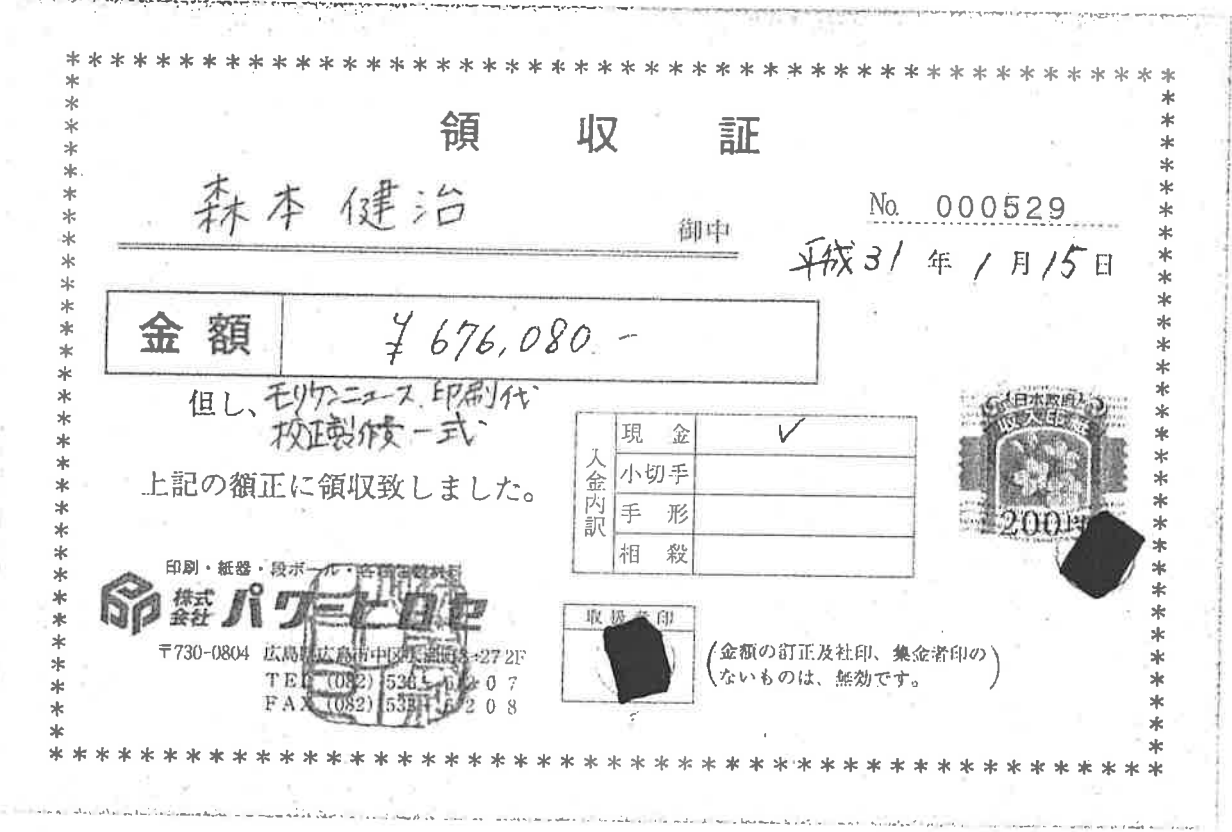 領収証
森本健治 御中
No. 000529
平成31年1月15日
金額 ¥676,080.-
但し、モリケンニュース.印刷代
校正製作費一式
上記の額正に領収致しました。
入金内訳
現金 ✓
小切手
手形
相殺
日本政府
収入印紙
200円
印刷・紙器・段ボール・各種
株式会社 パワーヒロセ
〒730-0804 広島県広島市中区 2F
TEL (082)
FAX (082) 208
取扱者印
(金額の訂正及社印、集金者印の
ないものは、無効です。)